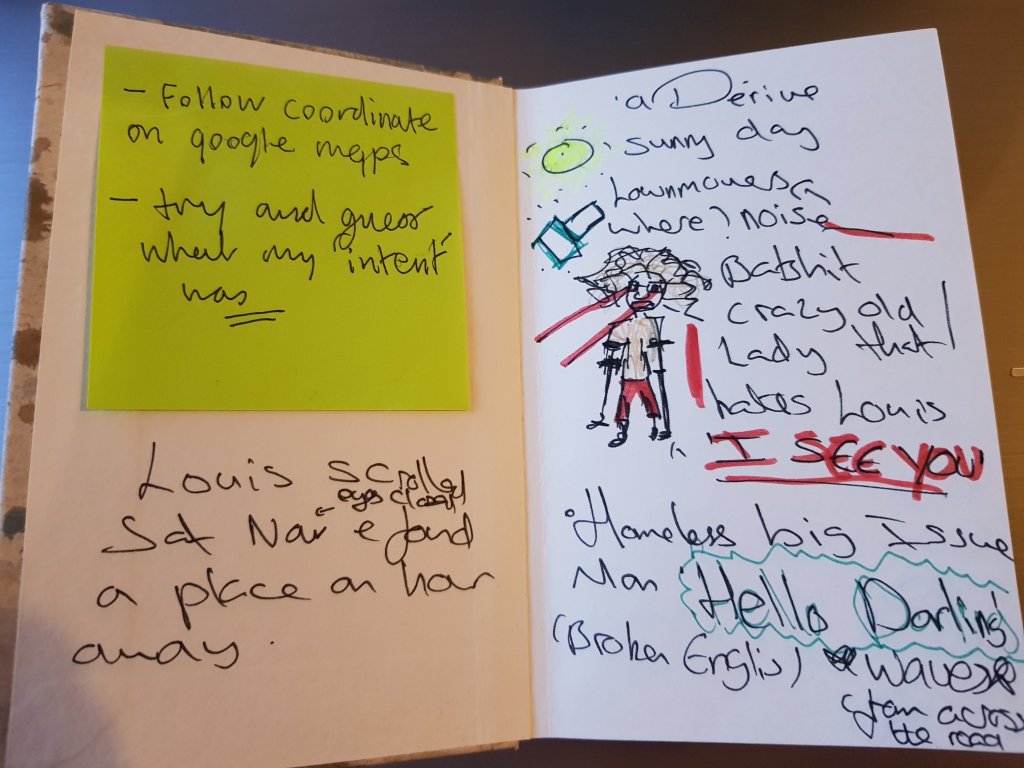 - Follow coordinate
on google maps
- try and guess
what my "intent"
was
Louis scrolled
eyes closed
Sat Nav & found
a place an hour
away.
a Dérive
sunny day
Lawnmowers
where? noise
Batshit
crazy old
Lady that
hates Louis
I SEE YOU
Homeless big Issue
Man Hello Darling
(Broken English) waves
from across
the road